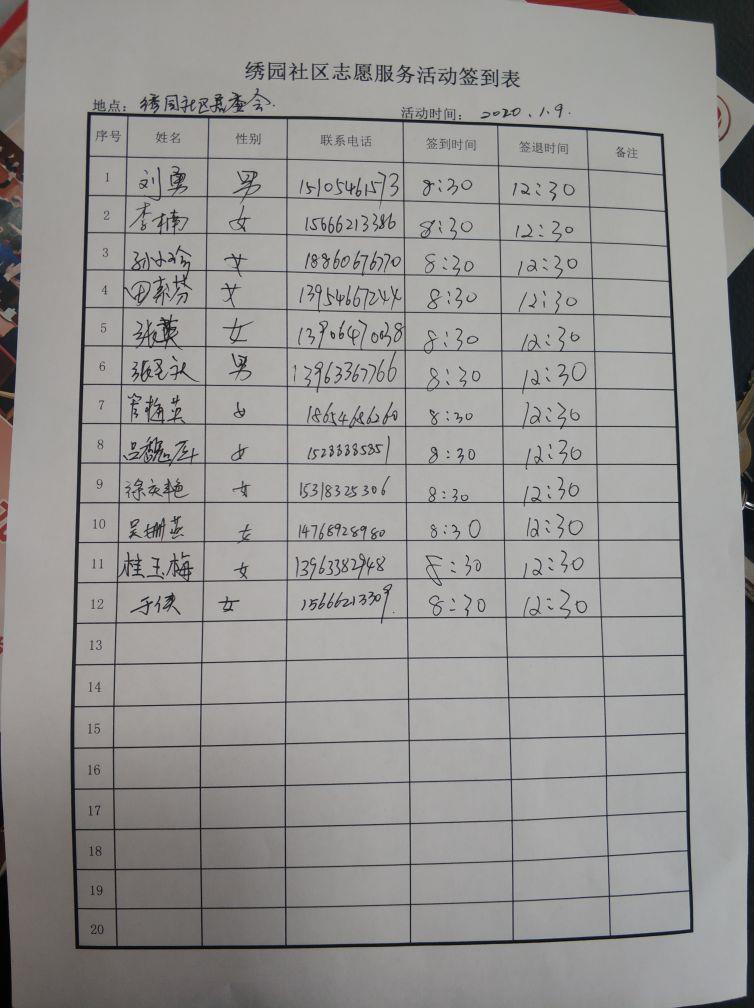 绣园社区志愿服务活动签到表
地点：绣园社区居委会. 活动时间：2020.1.9.
序号 姓名 性别 联系电话 签到时间 签退时间 备注
1 刘勇 男 15105461573 8:30 12:30
2 李楠 女 15666213386 8:30 12:30
3 孙小玲 女 18860676770 8:30 12:30
4 田素芬 女 13954667244 8:30 12:30
5 张英 女 13906470038 8:30 12:30
6 男 13963367766 8:30 12:30
7 女 18654686260 8:30 12:30
8 女 8:30 12:30
9 女 15318325306 8:30 12:30
10 吴珊燕 女 14768928980 8:30 12:30
11 桂玉梅 女 13963382948 8:30 12:30
12 女 15666213309. 8:30 12:30
13
14
15
16
17
18
19
20